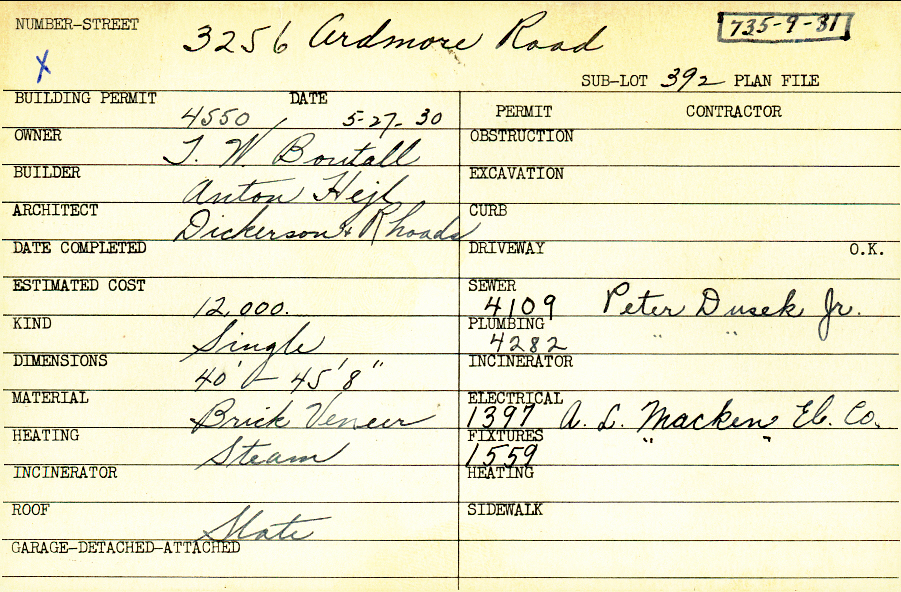 NUMBER-STREET 3256 Ardmore Road 735-9-31
X
SUB-LOT 392 PLAN FILE
BUILDING PERMIT 4550 DATE 5-27-30
PERMIT CONTRACTOR
OWNER T. W. Boutall
OBSTRUCTION
BUILDER Anton Hejl
EXCAVATION
ARCHITECT Dickerson & Rhoads
CURB
DATE COMPLETED
DRIVEWAY O.K.
ESTIMATED COST 12,000.
SEWER 4109 Peter Dusek Jr.
KIND Single
PLUMBING 4282 " "
DIMENSIONS 40' - 45'8"
INCINERATOR
MATERIAL Brick Veneer
ELECTRICAL 1397 A. L. Macken El. Co.
HEATING Steam
FIXTURES 1559 " "
INCINERATOR
HEATING
ROOF Slate
SIDEWALK
GARAGE-DETACHED-ATTACHED